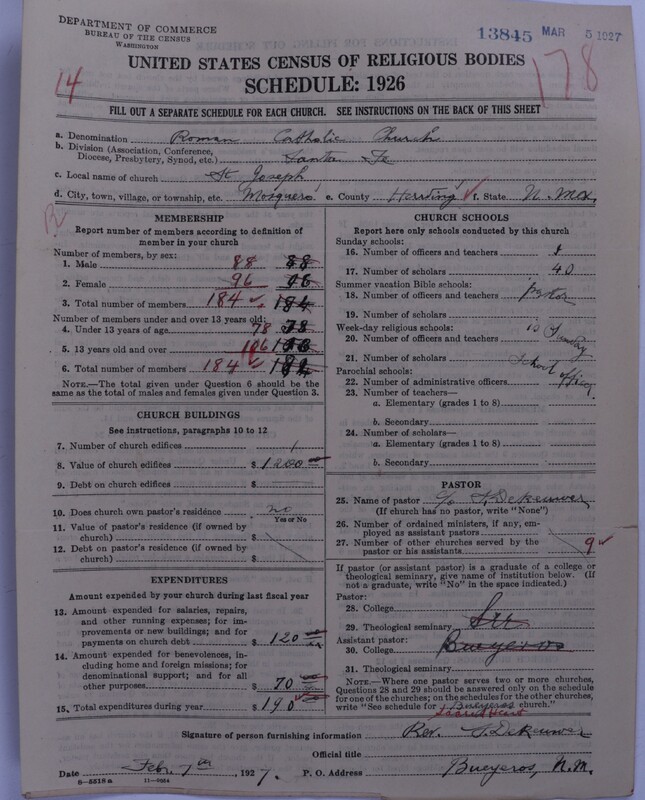 DEPARTMENT OF COMMERCE
BUREAU OF THE CENSUS
WASHINGTON
13845 MAR 5 1927
UNITED STATES CENSUS OF RELIGIOUS BODIES
SCHEDULE: 1926
14
178
FILL OUT A SEPARATE SCHEDULE FOR EACH CHURCH. SEE INSTRUCTIONS ON THE BACK OF THIS SHEET
a. Denomination Roman Catholic Church
b. Division (Association, Conference, Diocese, Presbytery, Synod, etc.) Santa Fe
c. Local name of church St Joseph
d. City, town, village, or township, etc. Mosquero e. County Harding f. State N. Mex,
R
MEMBERSHIP
Report number of members according to definition of member in your church
Number of members, by sex:
1. Male 88 88
2. Female 96 96
3. Total number of members 184 184
Number of members under and over 13 years old:
4. Under 13 years of age 78 78
5. 13 years old and over 106
6. Total number of members 184
NOTE.—The total given under Question 6 should be the same as the total of males and females given under Question 3.
CHURCH BUILDINGS
See instructions, paragraphs 10 to 12
7. Number of church edifices 1
8. Value of church edifices $ 1200
9. Debt on church edifices $
10. Does church own pastor's residence no
Yes or No
11. Value of pastor's residence (if owned by church) $
12. Debt on pastor's residence (if owned by church) $
EXPENDITURES
Amount expended by your church during last fiscal year
13. Amount expended for salaries, repairs, and other running expenses; for improvements or new buildings; and for payments on church debt $ 120
14. Amount expended for benevolences, including home and foreign missions; for denominational support; and for all other purposes $ 70
15. Total expenditures during year $ 190
CHURCH SCHOOLS
Report here only schools conducted by this church
Sunday schools:
16. Number of officers and teachers
17. Number of scholars 40
Summer vacation Bible schools:
18. Number of officers and teachers pastor
19. Number of scholars
Week-day religious schools:
20. Number of officers and teachers is Sunday
21. Number of scholars School officer
Parochial schools:
22. Number of administrative officers
23. Number of teachers—
a. Elementary (grades 1 to 8)
b. Secondary
24. Number of scholars—
a. Elementary (grades 1 to 8)
b. Secondary
PASTOR
25. Name of pastor J. Dekeuwer
(If church has no pastor, write "None")
26. Number of ordained ministers, if any, employed as assistant pastors
27. Number of other churches served by the pastor or his assistants 9
If pastor (or assistant pastor) is a graduate of a college or theological seminary, give name of institution below. (If not a graduate, write "No" in the space indicated.)
Pastor:
28. College
29. Theological seminary See
Assistant pastor:
30. College Bueyeros
31. Theological seminary
NOTE.—Where one pastor serves two or more churches, Questions 28 and 29 should be answered only on the schedule for one of the churches; on the schedules for the other churches, write "See schedule for Bueyeros church."
Sacred Heart
Signature of person furnishing information Rev. J. Dekeuwer
Official title
Date Feb. 7th, 1927. P. O. Address Bueyeros, N.M.
8—5518a 11—9264